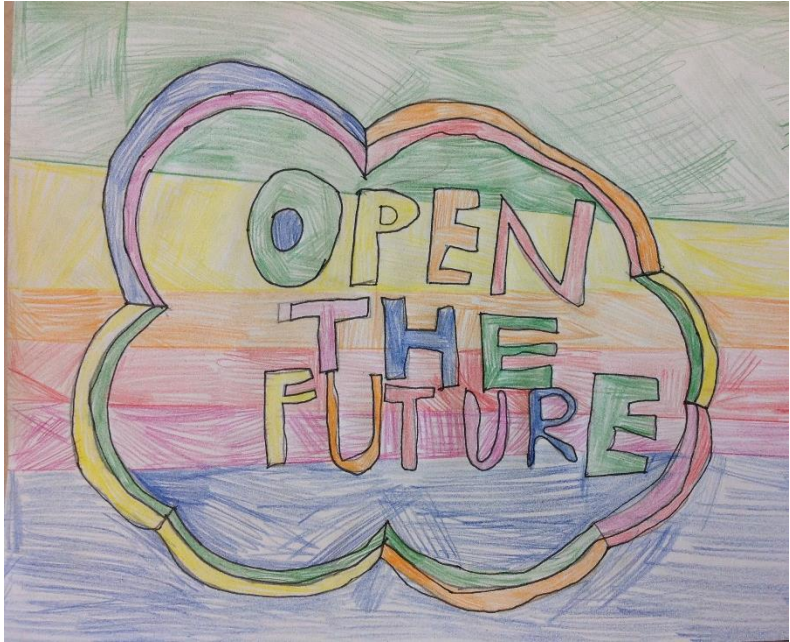 OPEN
THE
FUTURE